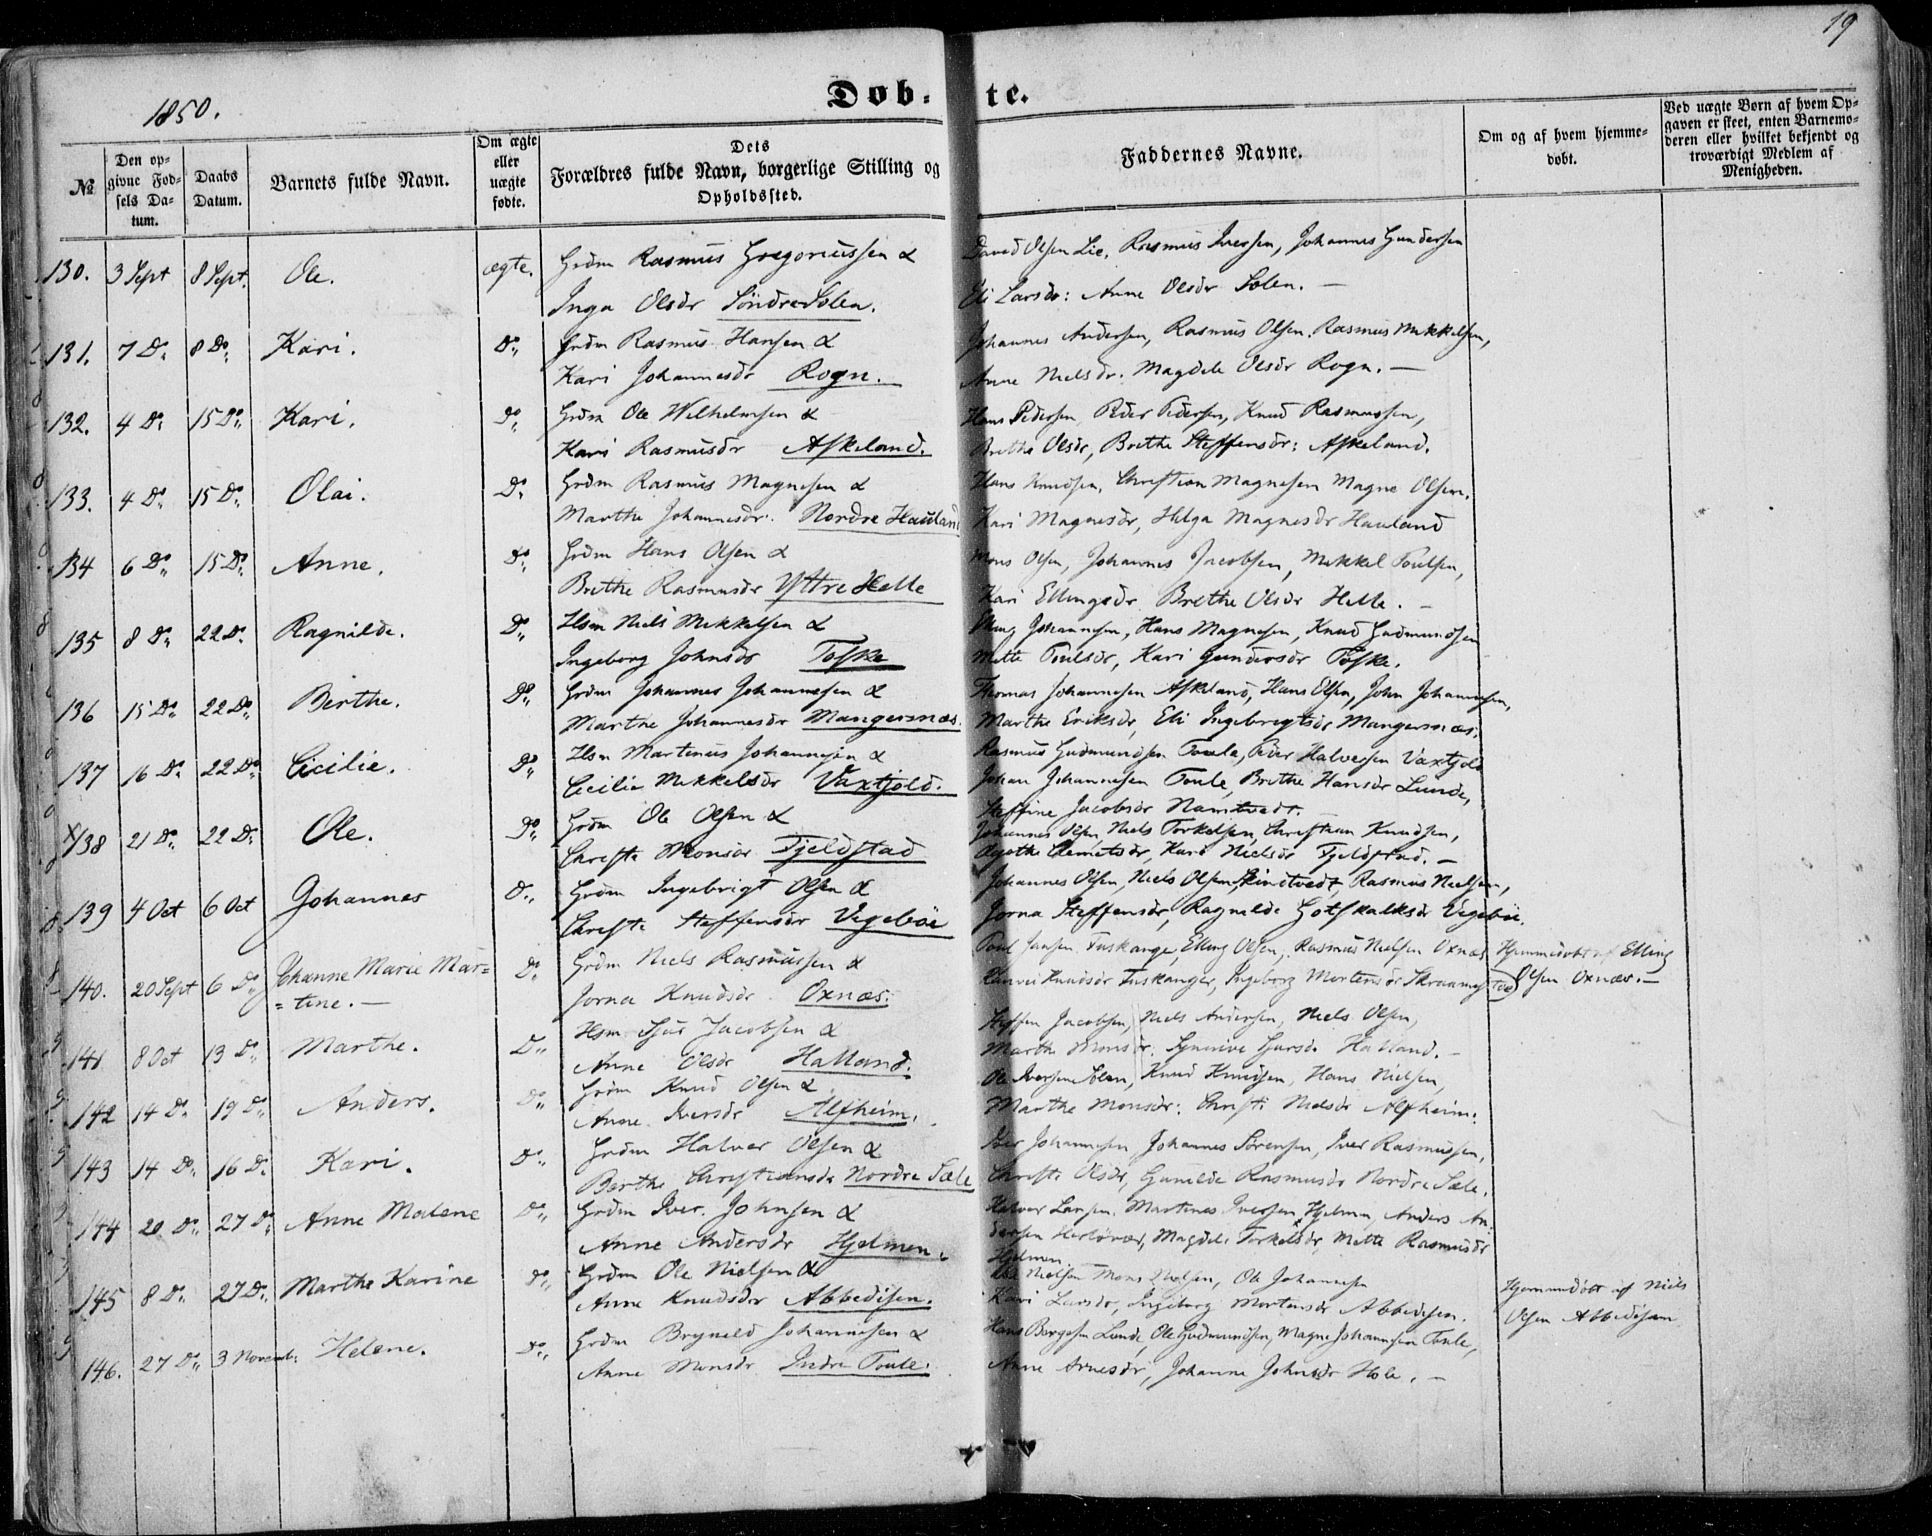 19
1850.
Døb- te.
№
Den opgivne Fødsels Datum.
Daabs Datum.
Barnets fulde Navn.
Om ægte eller uægte fødte.
Dets Forældres fulde Navn, borgerlige Stilling og Opholdssted.
Faddernes Navne.
Om og af hvem hjemmedøbt.
Ved uægte Børn af hvem Opgaven er skeet, enten Barnemoderen eller hvilket bekjendt og troværdigt Medlem af Menigheden.
130. 3 Sept 8 Sept. Ole. ægte. Grdm Rasmus Gregoriussen &
Inga Olsdr Söndre Solen.
David Olsen Lie, Rasmus Iversen, Johannes Gundersen
Eli Larsdr: Anne Olsdr Solen. —
131. 7 Do. 8 Do. Kari. Do. Grdm Rasmus Hansen &
Kari Johannesdr Rogn.
Johannes Andersen, Rasmus Olsen, Rasmus Mikkelsen,
Anne Nielsdr. Magdele Olsdr Rogn. —
132. 4 Do. 15 Do. Kari. Do. Grdm Ole Wilhelmsen &
Kari Rasmusdr Askeland.
Hans Pedersen, Peder Pedersen, Knud Rasmussen,
Brethe Olsdr, Brethe Steffensdr: Askeland.
133. 4 Do. 15 Do. Olai. Do. Grdm Rasmus Magnesen &
Marthe Johannesdr. Nordre Hauland
Hans Knudsen, Christian Magnesen Magne Olsen.
Kari Magnesdr, Helga Magnesdr Hauland
134 6 Do. 15 Do. Anne. Do. Grdm Hans Olsen &
Brethe Rasmusdr Yttre Helle
Mons Olsen, Johannes Jacobsen, Mikkel Poulsen,
Kari Ellingsdr Brethe Olsdr Helle. —
135 8 Do. 22 Do. Ragnilde. Do. Hsm Niels Mikkelsen &
Ingeborg Johnsdr Toske
Elling Johannesen, Hans Magnesen, Knud Gudmundsen
Mette Poulsdr, Kari Gundersdr Toske.
136 15 Do. 22 Do. Berthe. Do. Grdm Johannes Johannesen &
Marthe Johannesdr Mangersnæs.
Thomas Johannesen Askeland, Hans Olsen, John Johannesen,
Marthe Eriksdr, Eli Ingebrigtsdr Mangersnæs.
137 16 Do. 22 Do. Cicilie. Do. Hsm Martinus Johannesen &
Cecilie Mikkelsdr Vaxtjold.
Rasmus Gudmundsen Toule, Peder Halvorsen Vaxtjold
Johan Johannesen Toule, Brethe Hansdr Lunde,
Steffine Jacobsdr Namtvedt.
138 21 Do. 22 Do. Ole. Do. Grdm Ole Olsen &
Christe Monsdr Fjeldstad
Johannes Olsen, Niels Torkelsen, Christian Knudsen,
Agathe Clemetsdr, Kari Nielsdr Fjeldstad. —
139 4 Oct 6 Oct Johannes Do. Grdm Ingebrigt Olsen &
Christe Steffensdr Vegeböe
Johannes Olsen, Niels Olsen, Rasmus Nielsen,
Jorna Steffensdr, Ragnilde Gotskalksdr Vegeböe.
140. 20 Sept 6 Do. Johanne Marie Mar=
=tine. — Do. Grdm Niels Rasmussen &
Jorna Knudsdr Oxnæs.
Poul Jansen Fuskanger, Elling Olsen, Rasmus Nielsen Oxnæs
Knudsdr Fuskanger, Ingeborg Mortensdr
Hjemmedøbt af Elling
Olsen Oxnæs. —
141 8 Oct 13 Do. Marthe. Do. Hsm Sjur Jacobsen &
Anne Olsdr Halland.
Steffen Jacobsen, Niels Andersen, Niels Olsen,
Marthe Monsdr. Synnive Halland. —
142 14 Do. 19 Do. Anders. Do. Grdm Knud Olsen &
Anne Iversdr Alfheim.
Ole Iversen Solen, Knud Knudsen, Hans Nielsen,
Marthe Monsdr: Christi Nielsdr Alfheim.
143 14 Do. 16 Do. Kari. Do. Grdm Halvor Olsen &
Berthe Christiansdr Nordre Sæle
Johannesen Johannes Sörensen, Iver Rasmussen,
Christe Olsdr, Gunilde Rasmusdr Nordre Sæle.
144 20 Do. 27 Do. Anne Malene Do. Grdm Iver Johnsen &
Anne Andersdr Hjelmen.
Halvor Larsen, Martinus Iversen Hjelmen, Anders An=
dersen Herlövær, Magdele Torkelsdr, Mette Rasmusdr
Hjelmen
145 8 Do. 27 Do. Marthe Karine Do. Grdm Ole Nielsen &
Anne Knudsdr Abbedisen.
Nielsen Mons Nielsen, Ole Johannesen
Kari Larsdr, Ingeborg Mortensdr Abbedisen.
Hjemmedøbt af Niels
Olsen Abbedisen
146. 27 Do. 3 Novemb: Helene. Do. Grdm Brynild Johannesen &
Anne Monsdr Indre Toule.
Hans Börgesen Lunde, Ole Gudmundsen, Magne Johannesen Toule,
Anne Arnesdr, Johanna Johnsdr Hole. —